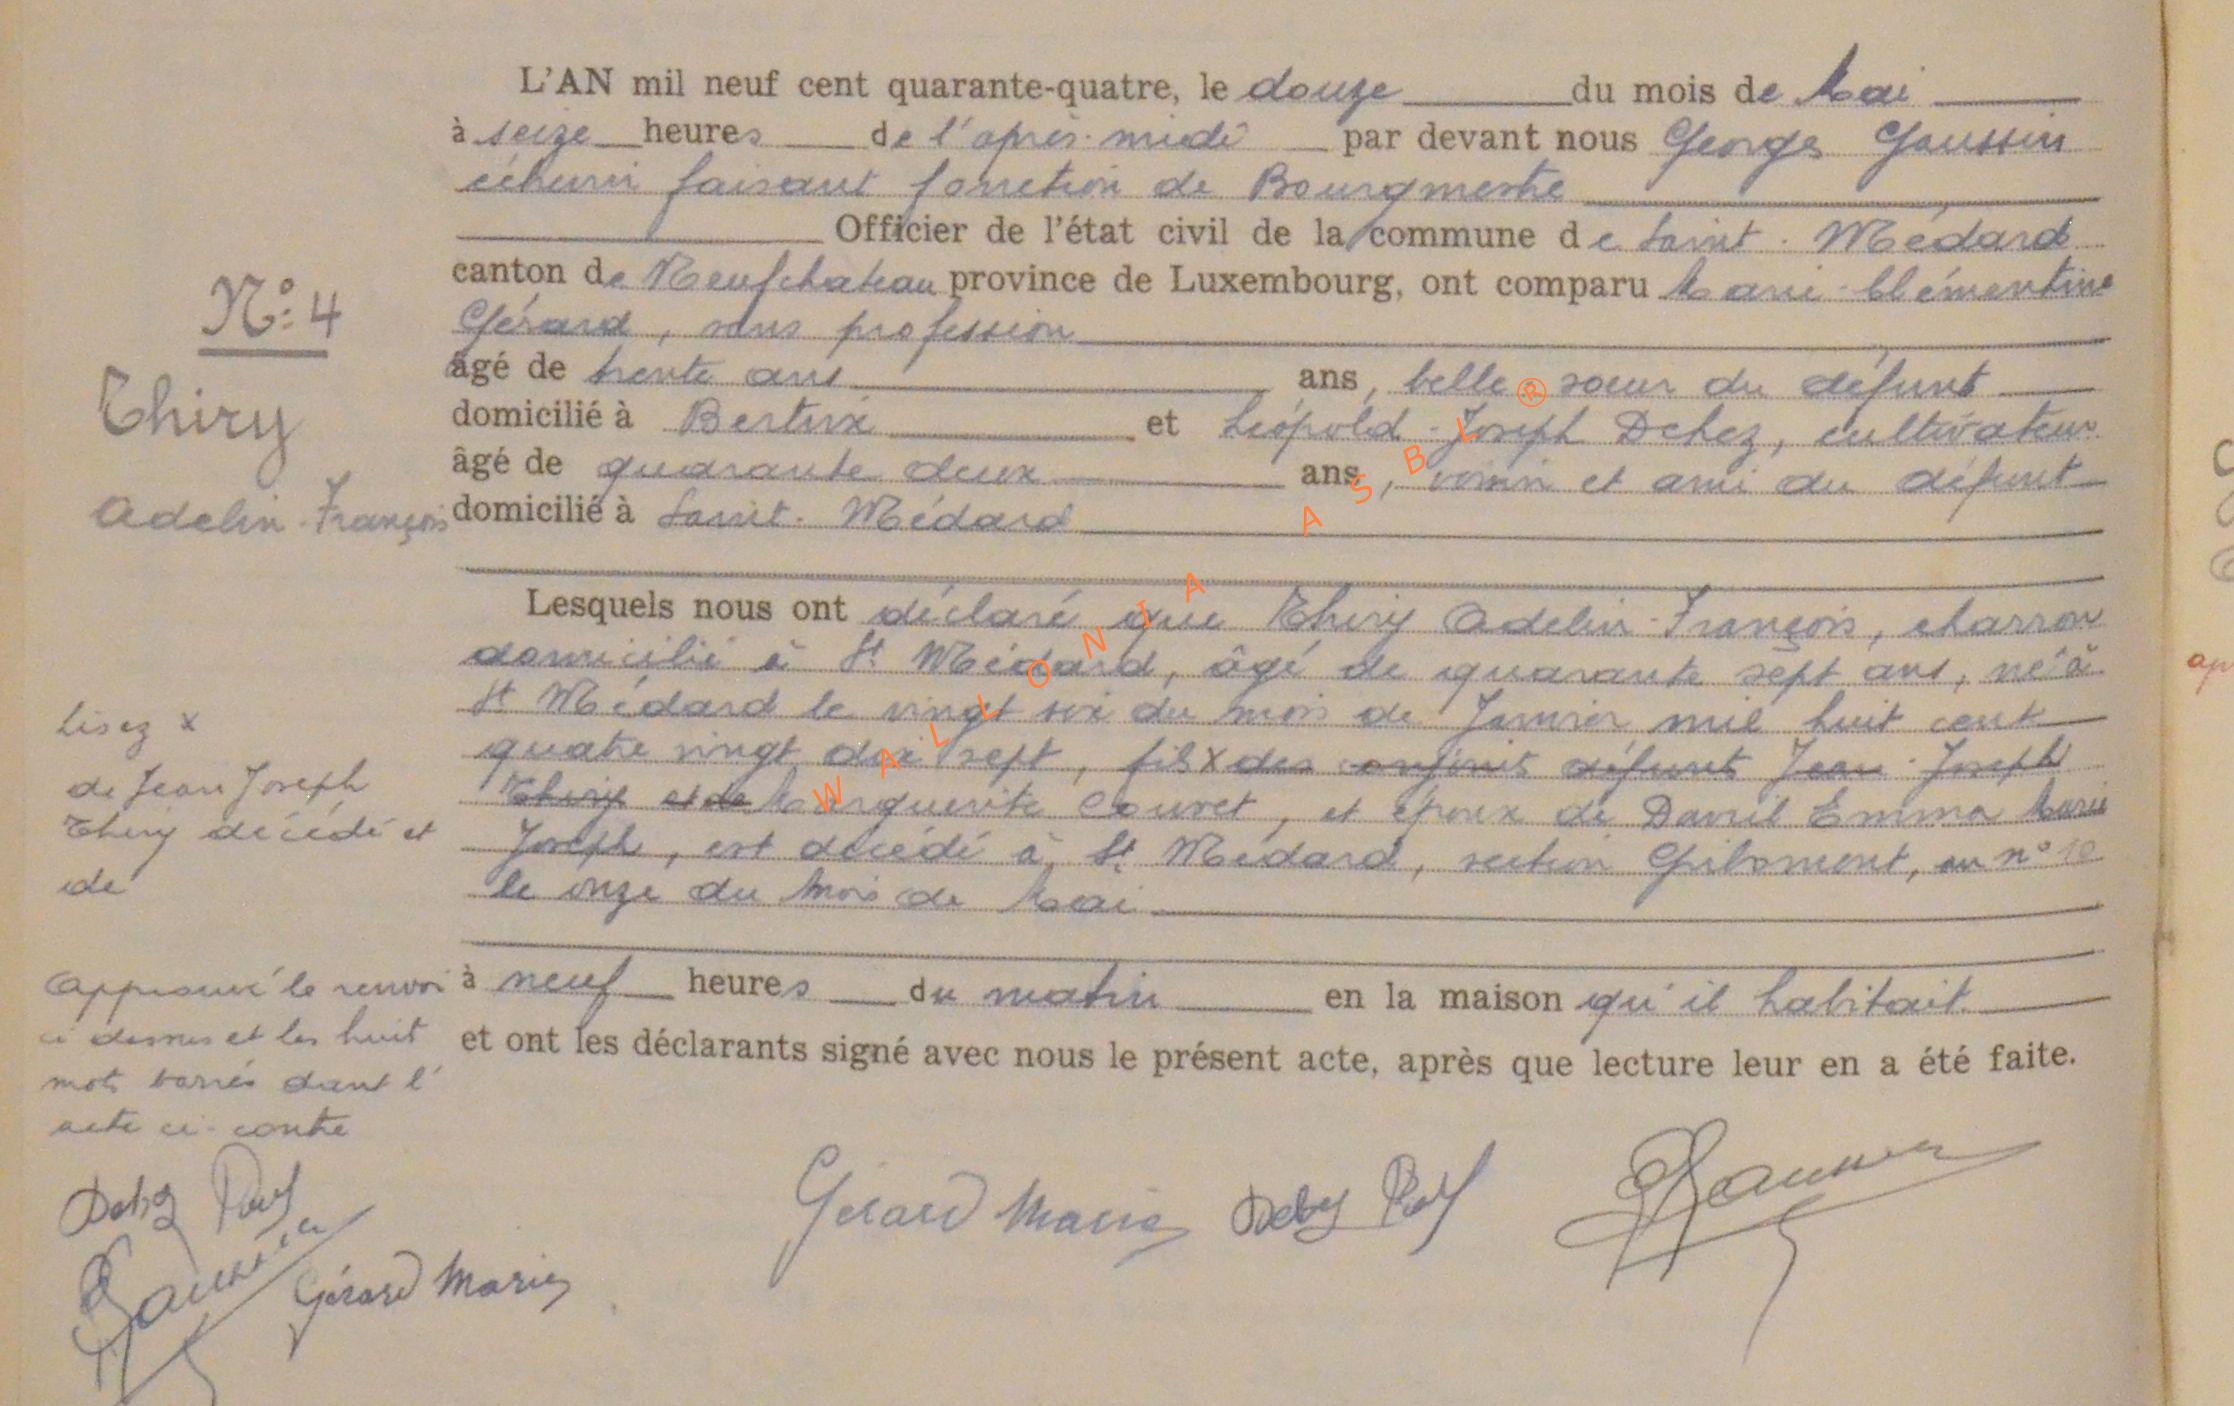 L'AN mil neuf cent quarante-quatre, le douze du mois de Mai
à seize heures de l'après-midi par devant nous Georges Gaussin
échevin faisant fonction de Bourgmestre
Officier de l'état civil de la commune de Saint-Médard
canton de Neufchateau province de Luxembourg, ont comparu Marie-Clémentine
Gérard, sans profession
âgé de trente ans ans, belle soeur du défunt
domicilié à Bertrix et Léopold-Joseph Dehez, cultivateur
âgé de quarante deux ans, voisin et ami du défunt
domicilié à Saint-Médard
N° 4
Thiry
Adelin-François
Lesquels nous ont déclaré que Thiry Adelin-François, charron
domicilié à St Médard, âgé de quarante sept ans, né à
St Médard le vingt six du mois de Janvier mil huit cent
quatre vingt dix sept, fils x des conjoints défunts Jean-Joseph
Thiry et de Marguerite Couvet, et époux de David Emma Marie
Joseph, est décédé à St Médard, section Gribomont, au n° 10
le onze du mois de Mai
à neuf heures du matin en la maison qu'il habitait.
et ont les déclarants signé avec nous le présent acte, après que lecture leur en a été faite.
Lisez x
de Jean Joseph
Thiry décédé et
de
Approuvé le renvoi
ci dessus et les huit
mots barrés dans l'
acte ci-contre
Dehez
Gaussin
Gérard Marie
Gérard Marie Dehez Gaussin
WALLONIA ASBL ®